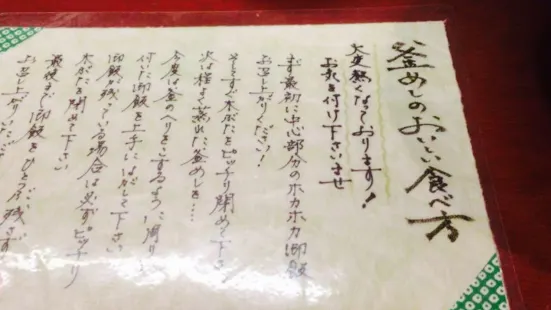 釜めしのおいしい食べ方
大変熱くなっております!
お気を付け下さいませ
まず最初に中心部分のホカホカ御飯
お召し上がりください!
そしてすぐ木ぶたをピッチリ閉めて下さい
次は程よく蒸れた釜めしを…
今度は釜のへりをこするように周り
付いた御飯を上手にはがして下さい
御飯が残っている場合は必ずピッチリ
木ぶたを閉めて下さい
最後まで御飯をひとつぶ残さず
お召し上がりください